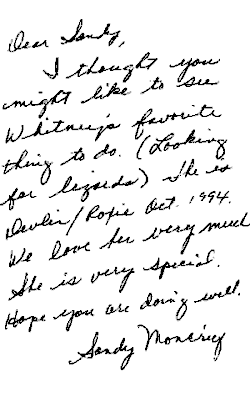 Dear Sandy,
I thought you
might like to see
Whitney's favorite
thing to do. (Looking
for lizards) She is
Devlin/Roxie Oct. 1994.
We love her very much
She is very special.
Hope you are doing well.
Sandy Moncrief